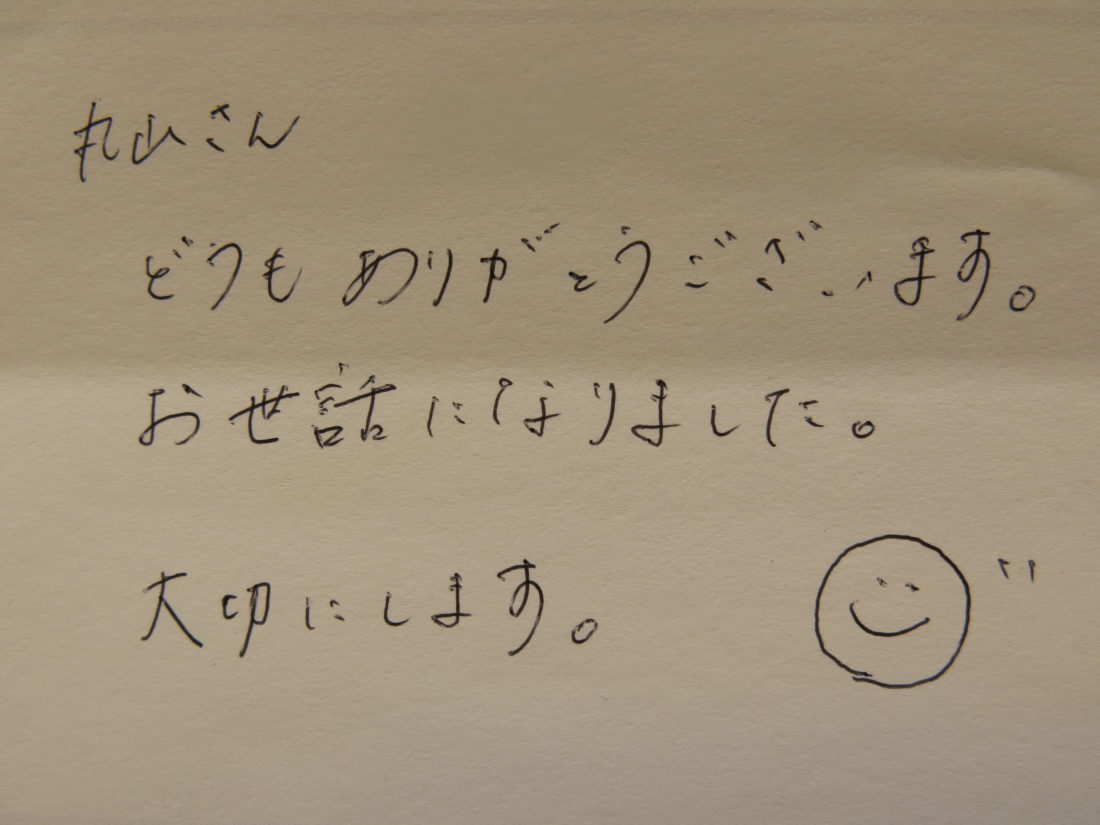 丸山さん
どうもありがとうございます。
お世話になりました。
大切にします。